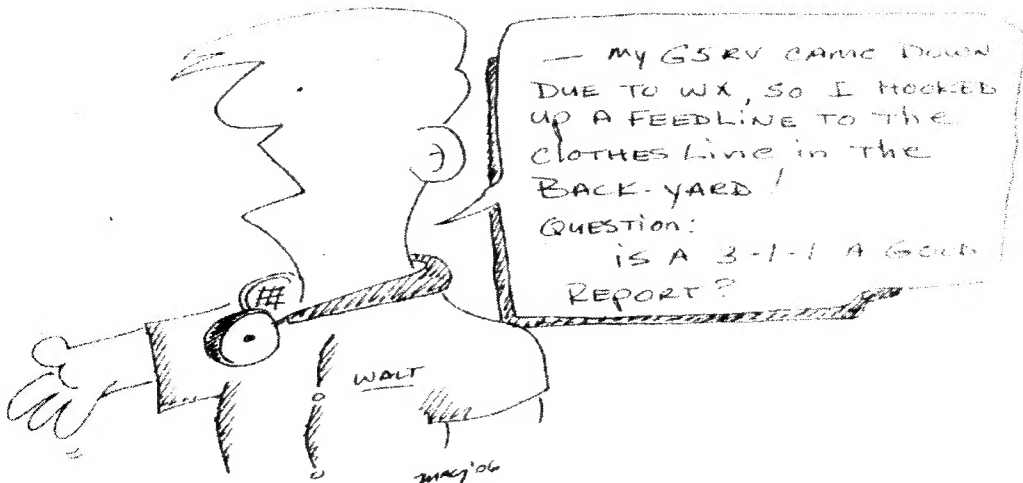 — MY G5RV CAME DOWN
DUE TO WX, SO I HOOKED
UP A FEEDLINE TO THE
CLOTHES LINE IN THE
BACK-YARD!
QUESTION:
IS A 3-1-1 A GOOD
REPORT?
WALT
MACJ '06